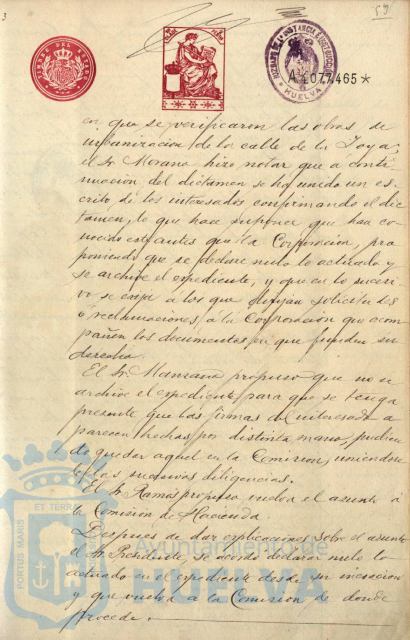 59
TIMBRE DEL ESTADO
JUZGADO DE 1ª INSTANCIA E INSTRUCCION
HUELVA
A.4077.465*
en que se verificaron las obras de
urbanización de la calle de la Joya,
el Sr. Morano hizo notar que a conti-
nuación del dictamen se ha unido un es-
crito de los interesados confirmando el dic-
tamen, lo que hace suponer que han co-
nocido este antes que la Corporación, pro-
poniendo que se declare nulo lo actuado y
se archive el expediente, y que en lo sucesi-
vo se exija a los que dirijan solicitudes
ó reclamaciones, á la Corporación que acom-
pañen los documentos en que funden su
derecho.
El Sr. Manzano propuso que no se
archive el expediente para que se tenga
presente que las firmas del interesado a
parecen hechas por distinta mano, pudien-
do quedar aquel en la Comision, uniendose
te las sucesivas diligencias.
El Sr. Ramos propuso vuelva el asunto á
la Comision de Hacienda.
Despues de dar explicaciones sobre el asunto
el Sr. Presidente, se acordó declarar nulo lo
actuado en el expediente desde su incoacion
y que vuelva á la Comision de donde
procede.
PORTUS MARIS ET TERRAE
Ayuntamiento de
HUELVA